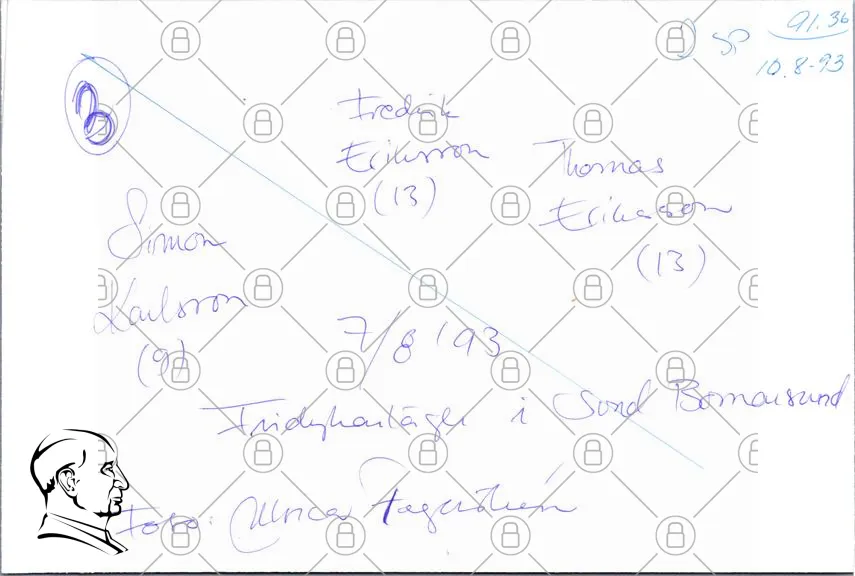 SP 91.36
10.8-93
Fredrik
Eriksson
(13)
Thomas
Eriksson
(13)
Simon
Karlsson
(9)
7/8 '93
Fridykarläger i Sund Bomarsund
Foto: Ulrica Fagerström